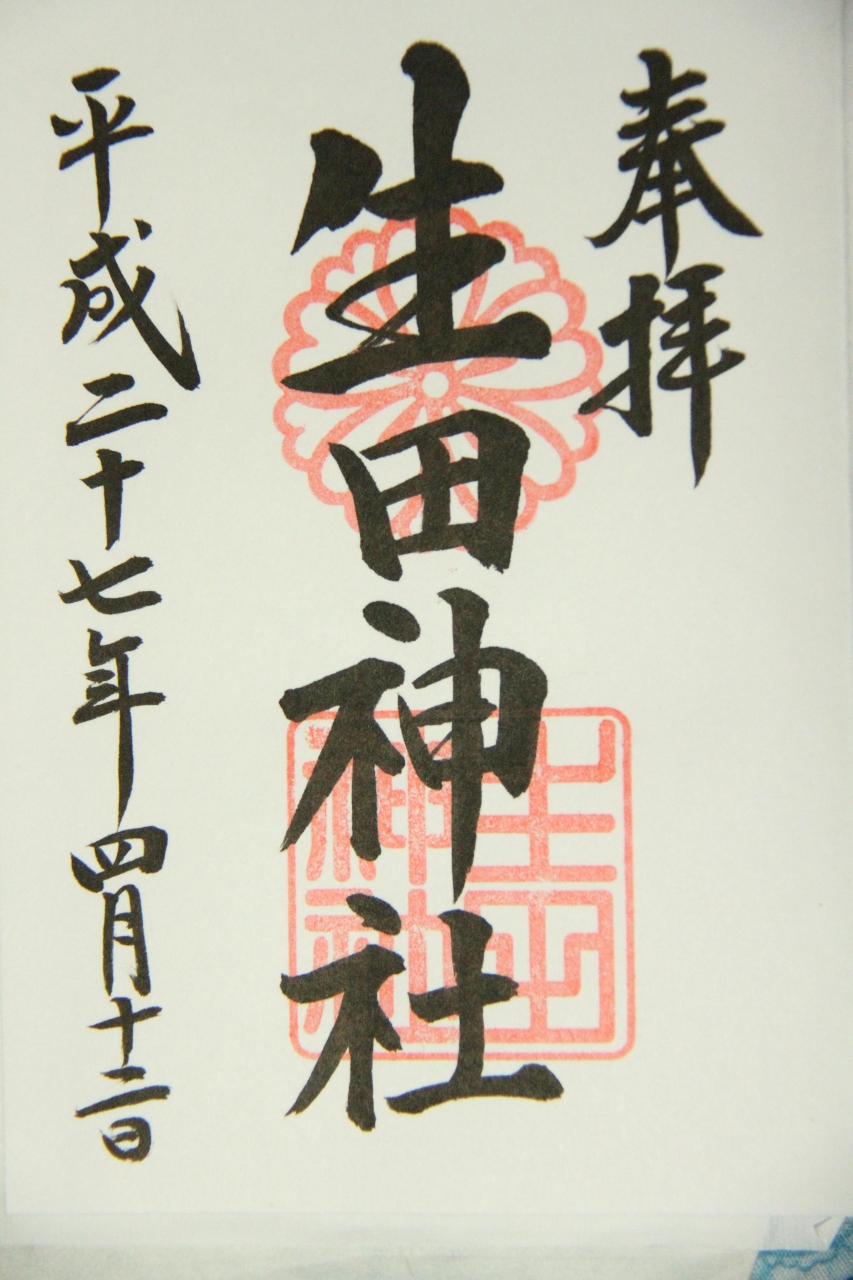 奉拝
生田神社
平成二十七年四月十二日
生田神社